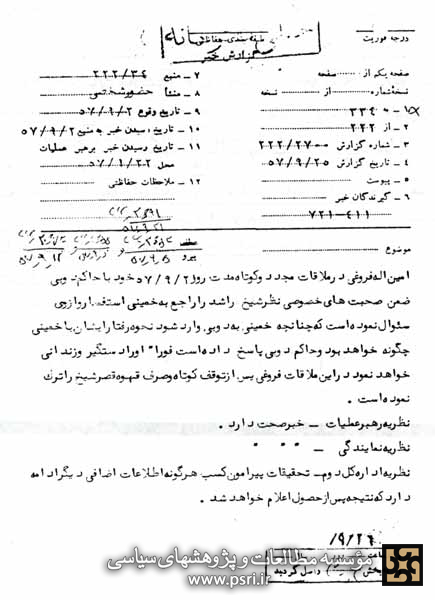 درجه فوریت
طبقه بندی حفاظتی
گزارش خبر
صفحه یکم از صفحه
نسخه شماره از نسخه
۱ - به ۳۳۴
۲ - از ۲۲۲
۳ - شماره گزارش ۲۲۲/۲۷۰۰
۴ - تاریخ گزارش ۵۷/۹/۲۵
۵ - پیوست
۶ - گیرندگان خبر
۷۲۱-۴۱۱
۷ - منبع ۲۲۲/۳۴
۸ - منشأ حضور شخصی
۹ - تاریخ وقوع ۵۷/۹/۲
۱۰ - تاریخ رسیدن خبر به منبع ۵۷/۹/۲
۱۱ - تاریخ رسیدن خبر برهبر عملیات
محل ۵۷/۹/۲۲
۱۲ - ملاحظات حفاظتی
موضوع
امین اله فروغی در ملاقات مجدد و کوتاه مدت روز ۵۷/۹/۲ خود با حاکم دوبی
ضمن صحبت های خصوصی نظر شیخ راشد را راجع به خمینی استفسار و ازوی
سئوال نموده است که چنانچه خمینی به دوبی وارد شود نحوه رفتار ایشان با خمینی
چگونه خواهد بود و حاکم دوبی پاسخ داده است فورا" او را دستگیر و زندانی
خواهد نمود در این ملاقات فروغی پس از توقف کوتاه و صرف قهوه قصر شیخ را ترک
نموده است .
نظریه رهبر عملیات - خبر صحت دارد .
نظریه نمایندگی - " " "
نظریه اداره کل دوم - تحقیقات پیرامون کسب هرگونه اطلاعات اضافی دیگر ادامه
دارد که نتیجه پس از حصول اعلام خواهد شد .
۹/۲۶/
مؤسسه مطالعات و پژوهشهای سیاسی
www.psri.ir